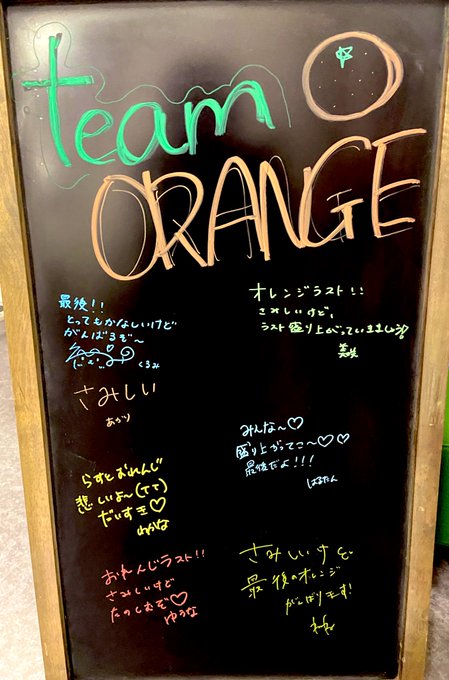 team
ORANGE
最後!!
とってもかなしいけど
がんばるぞ〜
くるみ
オレンジラスト!!
さみしいけど、
ラスト盛り上がっていきましょう!
美咲
さみしい
あかり
みんな〜♡
盛り上がってこ〜♡♡
最後だよ!!!
はるたん
らすとおれんじ
悲しいよ〜(TT)
だいすき♡
わかな
おれんじラスト!!
さみしいけど
たのしむぞ♡
ゆうな
さみしいけど、
最後のオレンジ
がんばります!